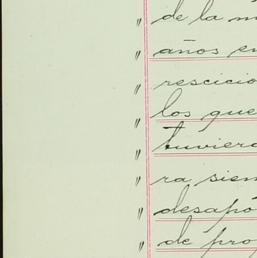 " de la m
" años en
" rescicio
" los que
" tuviera
" ra sien
" desapó
" de pro